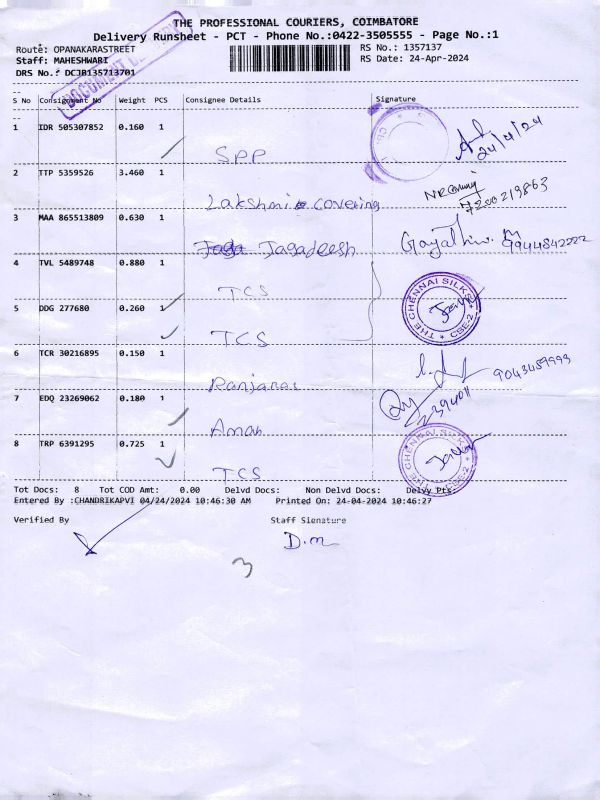 THE PROFESSIONAL COURIERS, COIMBATORE
Delivery Runsheet - PCT - Phone No.:0422-3505555 - Page No.:1
Route: OPANAKARASTREET RS No.: 1357137
Staff: MAHESHWARI RS Date: 24-Apr-2024
DRS No.: DCJB135713701
DOCUMENT
S No Consignment No Weight PCS Consignee Details Signature
1 IDR 505307852 0.160 1
SPP 24/4/24
2 TTP 5359526 3.460 1
Lakshmi covering 7200219863
3 MAA 865513809 0.630 1
Jagadeesh Gayathiri. M 9944842222
4 TVL 5489748 0.880 1
TCS
THE CHENNAI SILKS CBE-2
5 DDG 277680 0.260 1
TCS
6 TCR 30216895 0.150 1
9043459993
7 EDQ 23269062 0.180 1
Aman
8 TRP 6391295 0.725 1
TCS
THE CHENNAI SILKS CBE-2
Tot Docs: 8 Tot COD Amt: 0.00 Delvd Docs: Non Delvd Docs: Delvy Pts:
Entered By :CHANDRIKAPVI 04/24/2024 10:46:30 AM Printed On: 24-04-2024 10:46:27
Verified By Staff Signature
D.m
3